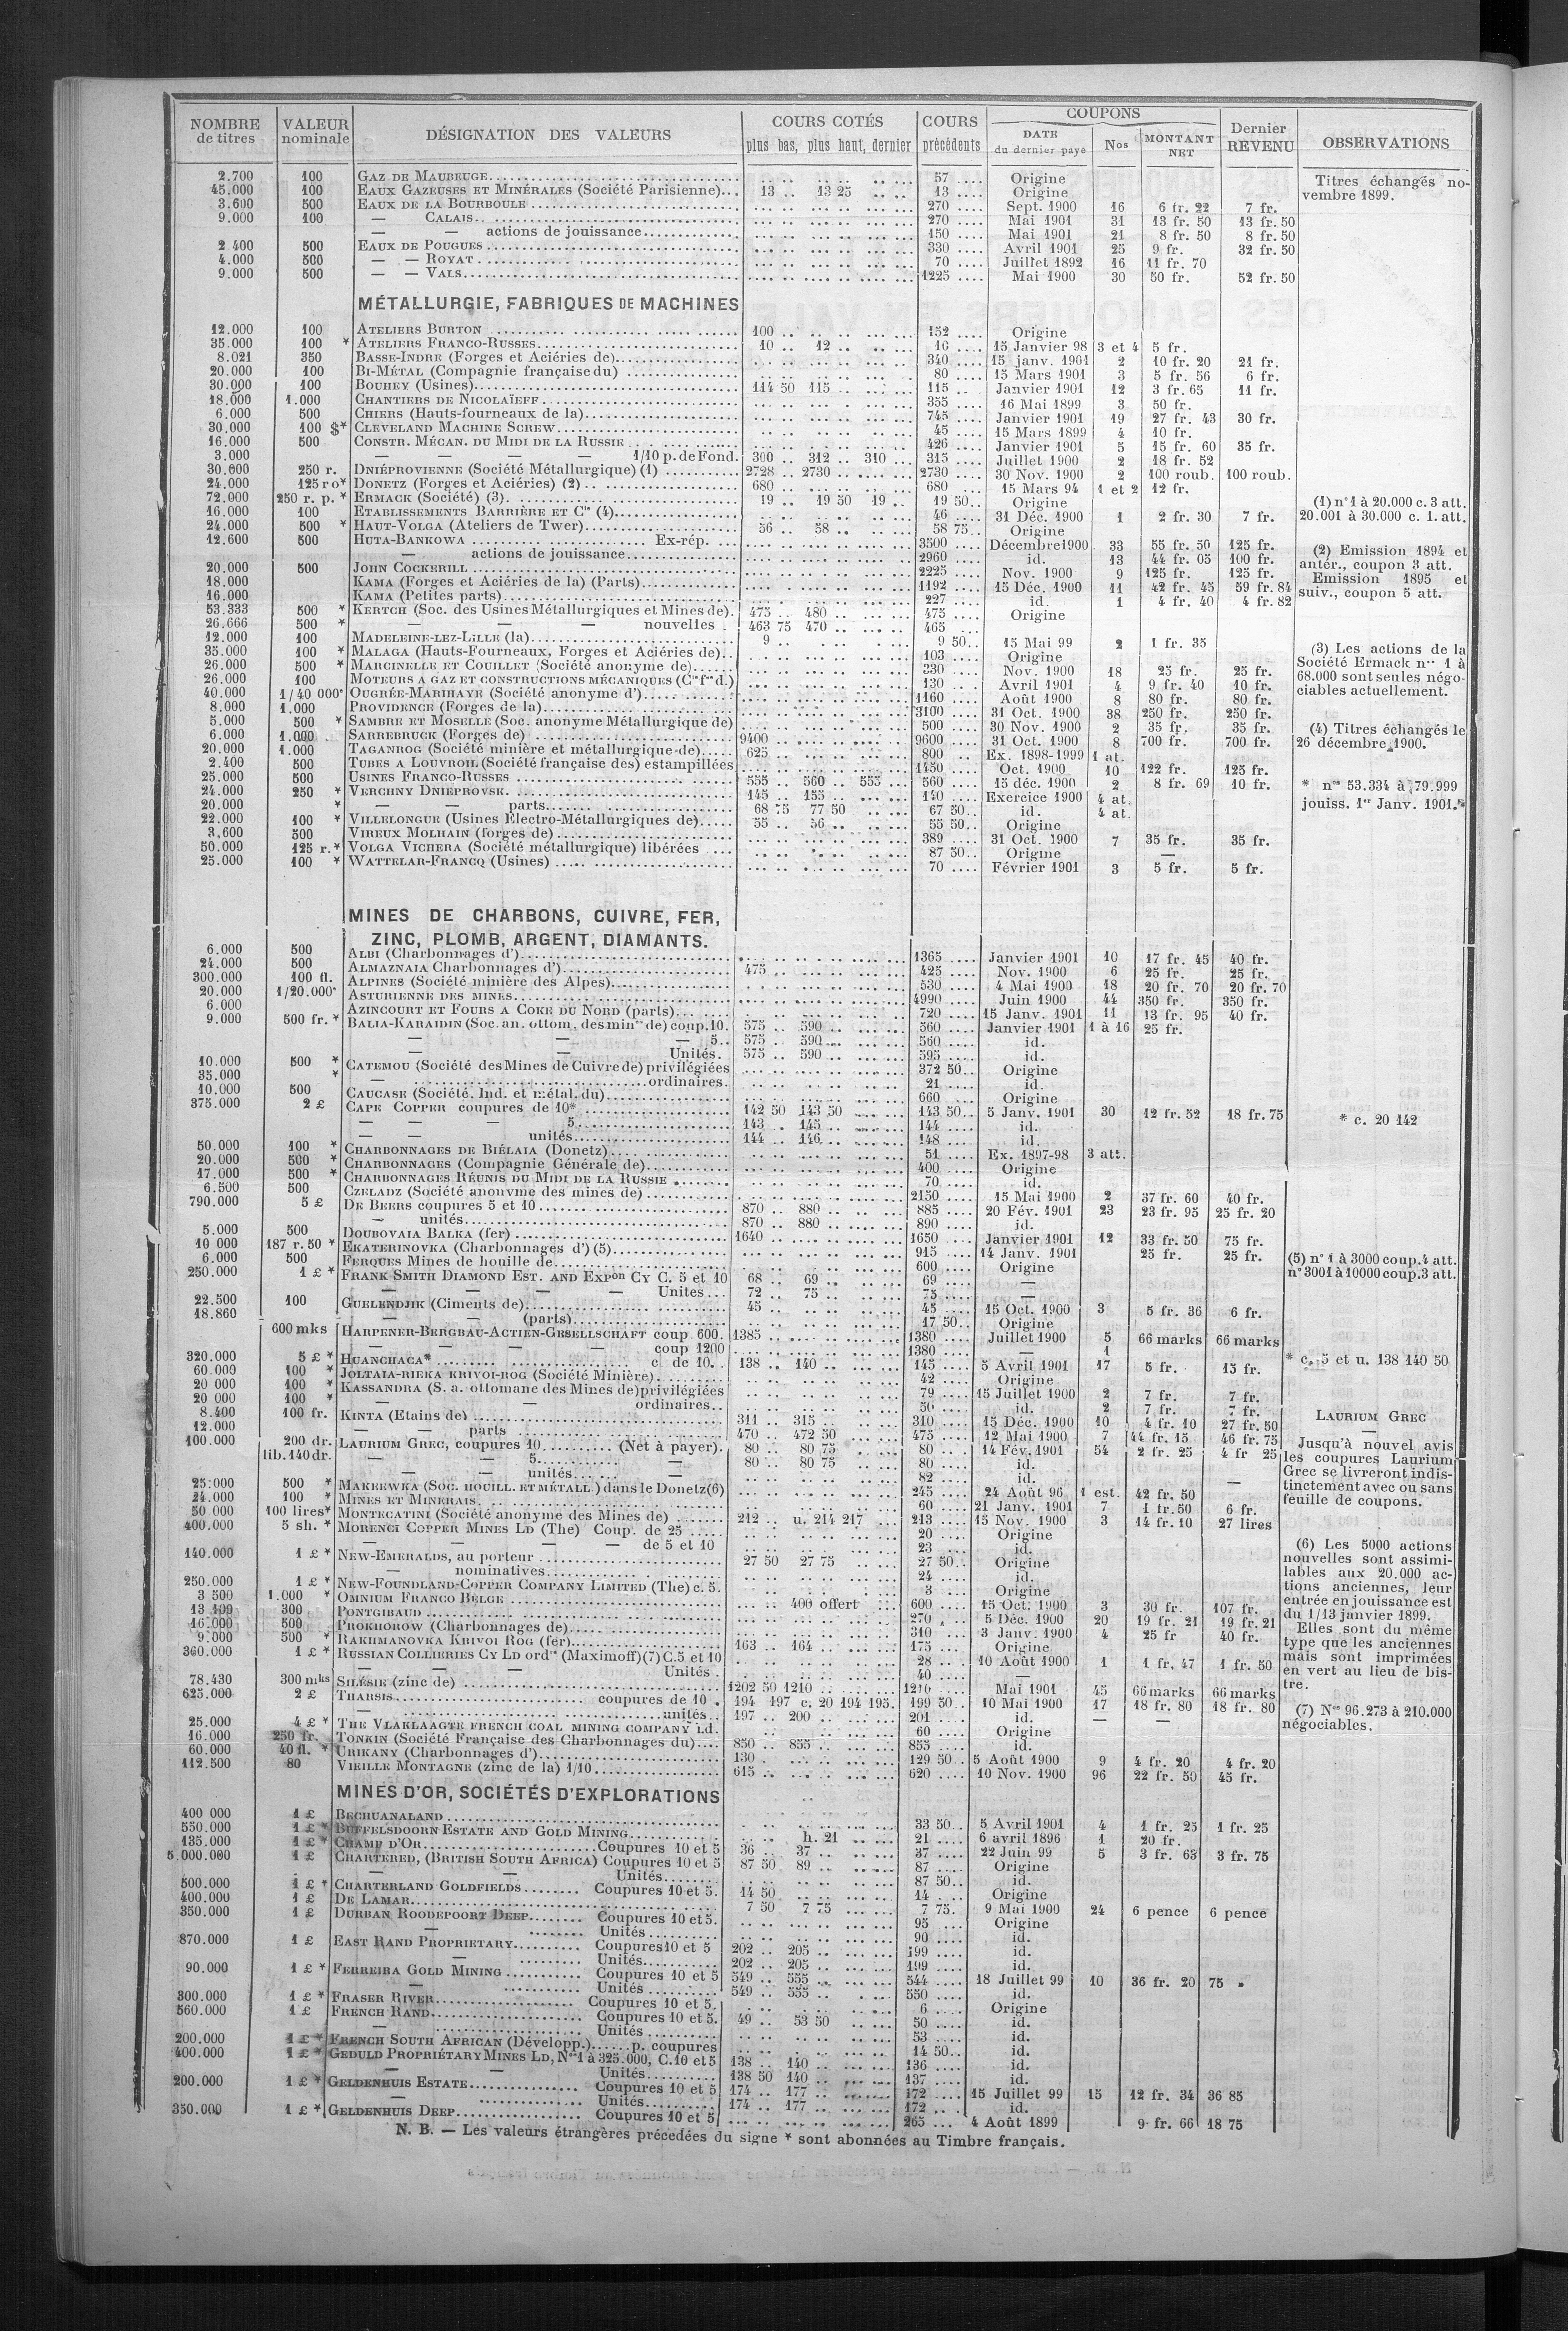 NOMBRE de titres | VALEUR nominale | DÉSIGNATION DES VALEURS | COURS COTÉS plus bas, plus haut, dernier | COURS précédents | COUPONS DATE du dernier payé | Nos | MONTANT NET | Dernier REVENU | OBSERVATIONS
2.700 100 GAZ DE MAUBEUGE 57 Origine
45.000 100 EAUX GAZEUSES ET MINÉRALES (Société Parisienne) 13 .. 13 25 13 Origine
3.600 500 EAUX DE LA BOURBOULE 270 Sept. 1900 16 6 fr. 22 7 fr.
9.000 100 — CALAIS 270 Mai 1901 31 13 fr. 50 13 fr. 50
— — actions de jouissance 150 Mai 1901 21 8 fr. 50 8 fr. 50
2.400 500 EAUX DE POUGUES 330 Avril 1901 25 9 fr. 32 fr. 50
4.000 500 — — ROYAT 70 Juillet 1892 16 11 fr. 70
9.000 500 — — VALS 1225 Mai 1900 30 50 fr. 52 fr. 50
Titres échangés novembre 1899.
MÉTALLURGIE, FABRIQUES DE MACHINES
12.000 100 ATELIERS BURTON 100 152 Origine
35.000 100 * ATELIERS FRANCO-RUSSES 10 .. 12 .. 16 15 Janvier 98 3 et 4 5 fr.
8.021 350 BASSE-INDRE (Forges et Aciéries de) 340 15 janv. 1901 2 10 fr. 20 21 fr.
20.000 100 BI-MÉTAL (Compagnie française du) 80 15 Mars 1901 3 5 fr. 56 6 fr.
30.000 100 BOUHEY (Usines) 114 50 115 115 Janvier 1901 12 3 fr. 65 11 fr.
18.000 1.000 CHANTIERS DE NICOLAÏEFF 355 16 Mai 1899 3 50 fr.
6.000 500 CHIERS (Hauts-fourneaux de la) 745 Janvier 1901 19 27 fr. 43 30 fr.
30.000 100 $* CLEVELAND MACHINE SCREW 45 15 Mars 1899 4 10 fr.
16.000 500 CONSTR. MÉCAN. DU MIDI DE LA RUSSIE 426 Janvier 1901 5 15 fr. 60 35 fr.
3.000 — — — — 1/10 p. de Fond. 300 .. 312 .. 310 315 Juillet 1900 2 18 fr. 52
30.000 250 r. DNIÉPROVIENNE (Société Métallurgique) (1) 2728 .. 2730 2730 30 Nov. 1900 2 100 roub. 100 roub.
24.000 125 ro* DONETZ (Forges et Aciéries) (2) 680 680 15 Mars 94 1 et 2 12 fr.
72.000 250 r. p. * ERMACK (Société) (3) 19 .. 19 50 19 19 50 Origine
16.000 100 ETABLISSEMENTS BARRIÈRE ET Cie (4) 46 31 Déc. 1900 1 2 fr. 30 7 fr.
24.000 500 * HAUT-VOLGA (Ateliers de Twer) 56 .. 58 58 75 Origine
12.600 500 HUTA-BANKOWA Ex-rép. 3500 Décembre 1900 33 55 fr. 50 125 fr.
— actions de jouissance 2960 id. 13 44 fr. 05 100 fr.
20.000 500 JOHN COCKERILL 2225 Nov. 1900 9 125 fr. 125 fr.
18.000 KAMA (Forges et Aciéries de la) (Parts) 1192 15 Déc. 1900 11 42 fr. 45 59 fr. 84
16.000 KAMA (Petites parts) 227 id. 1 4 fr. 40 4 fr. 82
53.333 500 * KERTCH (Soc. des Usines Métallurgiques et Mines de) 475 .. 480 475 Origine
26.666 500 * — — — nouvelles 463 75 470 465
12.000 100 MADELEINE-LEZ-LILLE (la) 9 9 50 15 Mai 99 2 1 fr. 35
35.000 100 * MALAGA (Hauts-Fourneaux, Forges et Aciéries de) 103 Origine
26.000 500 * MARCINELLE ET COUILLET (Société anonyme de) 330 Nov. 1900 18 25 fr. 25 fr.
26.000 100 MOTEURS A GAZ ET CONSTRUCTIONS MÉCANIQUES (Cie fse d.) 130 Avril 1901 4 9 fr. 40 10 fr.
40.000 1/40 000e OUGRÉE-MARIHAYE (Société anonyme d') 1160 Août 1900 8 80 fr. 80 fr.
8.000 1.000 PROVIDENCE (Forges de la) 3100 31 Oct. 1900 38 250 fr. 250 fr.
5.000 500 * SAMBRE ET MOSELLE (Soc. anonyme Métallurgique de) 500 30 Nov. 1900 2 35 fr. 35 fr.
6.000 1.000 SARREBRUCK (Forges de) 9400 9600 31 Oct. 1900 8 700 fr. 700 fr.
20.000 1.000 TAGANROG (Société minière et métallurgique de) 625 800 Ex. 1898-1999 1 at.
2.400 500 TUBES A LOUVROIL (Société française des) estampillées 1450 Oct. 1900 10 122 fr. 125 fr.
25.000 500 USINES FRANCO-RUSSES 555 .. 560 .. 555 560 15 déc. 1900 2 8 fr. 69 10 fr.
24.000 250 * VERCHNY DNIEPROVSK 145 .. 155 140 Exercice 1900 4 at.
20.000 * — — parts 68 75 77 50 67 50 id. 4 at.
22.000 100 * VILLELONGUE (Usines Électro-Métallurgiques de) 55 .. 56 55 50 Origine
3,600 500 VIREUX MOLHAIN (forges de) 389 31 Oct. 1900 7 35 fr. 35 fr.
50.000 125 r.* VOLGA VICHERA (Société métallurgique) libérées 87 50 Origine —
25.000 100 * WATTELAR-FRANCQ (Usines) 70 Février 1901 3 5 fr. 5 fr.
(1) n° 1 à 20.000 c. 3 att.
20.001 à 30.000 c. 1. att.
(2) Emission 1894 et
antér., coupon 3 att.
Emission 1895 et
suiv., coupon 5 att.
(3) Les actions de la
Société Ermack nos 1 à
68.000 sont seules négociables actuellement.
(4) Titres échangés le
26 décembre 1900.
* nos 53.334 à 79.999
jouiss. 1er Janv. 1901.
MINES DE CHARBONS, CUIVRE, FER,
ZINC, PLOMB, ARGENT, DIAMANTS.
6.000 500 ALBI (Charbonnages d') 1365 Janvier 1901 10 17 fr. 45 40 fr.
24.000 500 ALMAZNAIA Charbonnages d') 475 425 Nov. 1900 6 25 fr. 25 fr.
300.000 100 fl. ALPINES (Société minière des Alpes) 530 4 Mai 1900 18 20 fr. 70 20 fr. 70
20.000 1/20.000e ASTURIENNE DES MINES 4990 Juin 1900 44 350 fr. 350 fr.
6.000 AZINCOURT ET FOURS A COKE DU NORD (parts) 720 15 Janv. 1901 11 13 fr. 95 40 fr.
9.000 500 fr. * BALIA-KARAIDIN (Soc. an. ottom. des mines de) coup. 10. 575 .. 590 560 Janvier 1901 1 à 16 25 fr.
— — — 5 575 .. 590 560 id.
— — Unités. 575 .. 590 595 id.
10.000 500 * CATEMOU (Société des Mines de Cuivre de) privilégiées 372 50 Origine
35.000 * — ordinaires. 21 id.
10.000 500 CAUCASE (Société. Ind. et métal. du) 660 Origine
375.000 2 £ CAPE COPPER coupures de 10* 142 50 143 50 143 50 5 Janv. 1901 30 12 fr. 52 18 fr. 75
— — — 5 143 .. 145 144 id.
— — unités 144 .. 146 148 id.
50.000 100 * CHARBONNAGES DE BIÉLAIA (Donetz) 51 Ex. 1897-98 3 att.
20.000 500 * CHARBONNAGES (Compagnie Générale de) 400 Origine
17.000 500 * CHARBONNAGES RÉUNIS DU MIDI DE LA RUSSIE 70 id.
6.500 500 CZELADZ (Société anonyme des mines de) 2150 15 Mai 1900 2 37 fr. 60 40 fr.
790.000 5 £ DE BEERS coupures 5 et 10 870 .. 880 885 20 Fév. 1901 23 23 fr. 95 25 fr. 20
— unités 870 .. 880 890 id.
5.000 500 DOUBOVAIA BALKA (fer) 1640 1650 Janvier 1901 12 33 fr. 50 75 fr.
10 000 187 r. 50 * EKATERINOVKA (Charbonnages d') (5) 915 14 Janv. 1901 25 fr. 25 fr.
6.000 500 FERQUES Mines de houille de 600 Origine
250.000 1 £ * FRANK SMITH DIAMOND EST. AND EXPon CY C. 5 et 10 68 .. 69 69 —
— — — — Unites 72 .. 75 75 —
22.500 100 GUELENDJIK (Ciments de) 45 45 15 Oct. 1900 3 5 fr. 36 6 fr.
18.860 — — (parts) 17 50 Origine
600 mks HARPENER-BERGBAU-ACTIEN-GESELLSCHAFT coup 600. 1385 1380 Juillet 1900 5 66 marks 66 marks
— — — — coup 1200 1380 — 1
320.000 5 £ * HUANCHACA* c. de 10 138 .. 140 145 5 Avril 1901 17 5 fr. 15 fr.
60.000 100 * JOLTAIA-RIEKA KRIVOI-ROG (Société Minière) 42 Origine
20 000 100 * KASSANDRA (S. a. ottomane des Mines de) privilégiées 79 15 Juillet 1900 2 7 fr. 7 fr.
20 000 100 * — — ordinaires 50 id. 2 7 fr. 7 fr.
8.400 100 fr. KINTA (Etains de) 311 .. 315 310 15 Déc. 1900 10 4 fr. 10 27 fr. 50
12.000 — — parts 470 .. 472 50 475 12 Mai 1900 7 44 fr. 15 46 fr. 75
100.000 200 dr. LAURIUM GREC, coupures 10 (Net à payer). 80 .. 80 75 80 14 Fév. 1901 54 2 fr. 25 4 fr 25
lib. 140 dr. — — 5 — 80 .. 80 75 80 id.
— — unités — 82 id. —
25.000 500 * MAKEEWKA (SOC. HOUILL. ET MÉTALL.) dans le Donetz (6) 245 24 Août 96 1 est. 42 fr. 50
24.000 100 * MINES ET MINERAIS 60 21 Janv. 1901 7 1 fr. 50 6 fr.
50 000 100 lires* MONTECATINI (Société anonyme des Mines de) 212 .. u. 214 217 213 15 Nov. 1900 3 14 fr. 10 27 lires
400.000 5 sh. * MORENCI COPPER MINES LD (The) Coup. de 25 20 Origine
— — — — de 5 et 10 23 id.
140.000 1 £ * NEW-EMERALDS, au porteur 27 50 27 75 27 50 Origine
— nominatives 24 id.
250.000 1 £ * NEW-FOUNDLAND-COPPER COMPANY LIMITED (The) c. 5. 3 Origine
3 500 1.000 * OMNIUM FRANCO BELGE 400 offert 600 15 Oct. 1900 3 30 fr. 107 fr.
13 109 300 PONTGIBAUD 270 5 Déc. 1900 20 19 fr. 21 19 fr. 21
16.000 500 PROKHOROW (Charbonnages de) 310 3 Janv. 1900 4 25 fr 40 fr.
9.000 500 * RAKHMANOVKA KRIVOI ROG (fer) 163 .. 164 175 Origine
360.000 1 £ * RUSSIAN COLLIERIES CY LD ordres (Maximoff) (7) C. 5 et 10 28 10 Août 1900 1 1 fr. 47 1 fr. 50
— — — Unités 40 —
78.430 300 mks SILÉSIE (zinc de) 1202 50 1210 1210 Mai 1901 45 66 marks 66 marks
625.000 2 £ THARSIS coupures de 10 194 197 c. 20 194 195. 199 50 10 Mai 1900 17 18 fr. 80 18 fr. 80
— unités 197 .. 200 201 id. — —
25.000 4 £ * THE VLAKLAAGTE FRENCH COAL MINING COMPANY Ld. 60 Origine
16.000 250 fr. TONKIN (Société Française des Charbonnages du) 850 .. 855 855 id.
60.000 40 fl. * URIKANY (Charbonnages d') 130 129 50 5 Août 1900 9 4 fr. 20 4 fr. 20
112.500 80 VIEILLE MONTAGNE (zinc de la) 1/10 615 620 10 Nov. 1900 96 22 fr. 50 45 fr.
* c. 20 142
(5) n° 1 à 3000 coup. 4 att.
n° 3001 à 10000 coup. 3 att.
* c. 5 et u. 138 140 50
LAURIUM GREC
—
Jusqu'à nouvel avis
les coupures Laurium
Grec se livreront indistinctement avec ou sans
feuille de coupons.
(6) Les 5000 actions
nouvelles sont assimilables aux 20.000 actions anciennes, leur
entrée en jouissance est
du 1/13 janvier 1899.
Elles sont du même
type que les anciennes
mais sont imprimées
en vert au lieu de bistre.
(7) Nos 96.273 à 210.000
négociables.
MINES D'OR, SOCIÉTÉS D'EXPLORATIONS
400 000 1 £ BECHUANALAND 33 50 5 Avril 1901 4 1 fr. 25 1 fr. 25
550.000 1 £ * BUFFELSDOORN ESTATE AND GOLD MINING h. 21 21 6 avril 1896 1 20 fr.
135.000 1 £ * CHAMP D'OR Coupures 10 et 5 36 .. 37 37 22 Juin 99 5 3 fr. 63 3 fr. 75
5.000.000 1 £ CHARTERED, (BRITISH SOUTH AFRICA) Coupures 10 et 5 87 50 89 87 Origine
— — Unités 87 50 id.
500.000 1 £ * CHARTERLAND GOLDFIELDS Coupures 10 et 5. 14 50 14 Origine
400.000 1 £ DE LAMAR 7 50 7 75 7 75. 9 Mai 1900 24 6 pence 6 pence
350.000 1 £ DURBAN ROODEPOORT DEEP Coupures 10 et 5. 95 Origine
— Unités 90 id.
870.000 1 £ EAST RAND PROPRIETARY Coupures 10 et 5 202 .. 205 199 id.
— Unités 202 .. 205 199 id.
90.000 1 £ * FERREIRA GOLD MINING Coupures 10 et 5 549 .. 555 544 18 Juillet 99 10 36 fr. 20 75 »
— Unités 549 .. 555 550 id.
300.000 1 £ * FRASER RIVER Coupures 10 et 5. 6 Origine
560.000 1 £ FRENCH RAND Coupures 10 et 5. 49 .. 53 50 50 id.
— Unités 53 id.
200.000 1 £ * FRENCH SOUTH AFRICAN (Développ.) p. coupures 14 50 id.
400.000 1 £ * GEDULD PROPRIÉTARY MINES LD, Nos 1 à 325.000, C. 10 et 5 138 .. 140 136 id.
— — Unités 138 50 140 137 id.
200.000 1 £ * GELDENHUIS ESTATE Coupures 10 et 5 174 .. 177 172 15 Juillet 99 15 12 fr. 34 36 85
— Unités 174 .. 177 172 id.
350.000 1 £ * GELDENHUIS DEEP Coupures 10 et 5 265 4 Août 1899 9 fr. 66 18 75
N. B. — Les valeurs étrangères précédées du signe * sont abonnées au Timbre français.